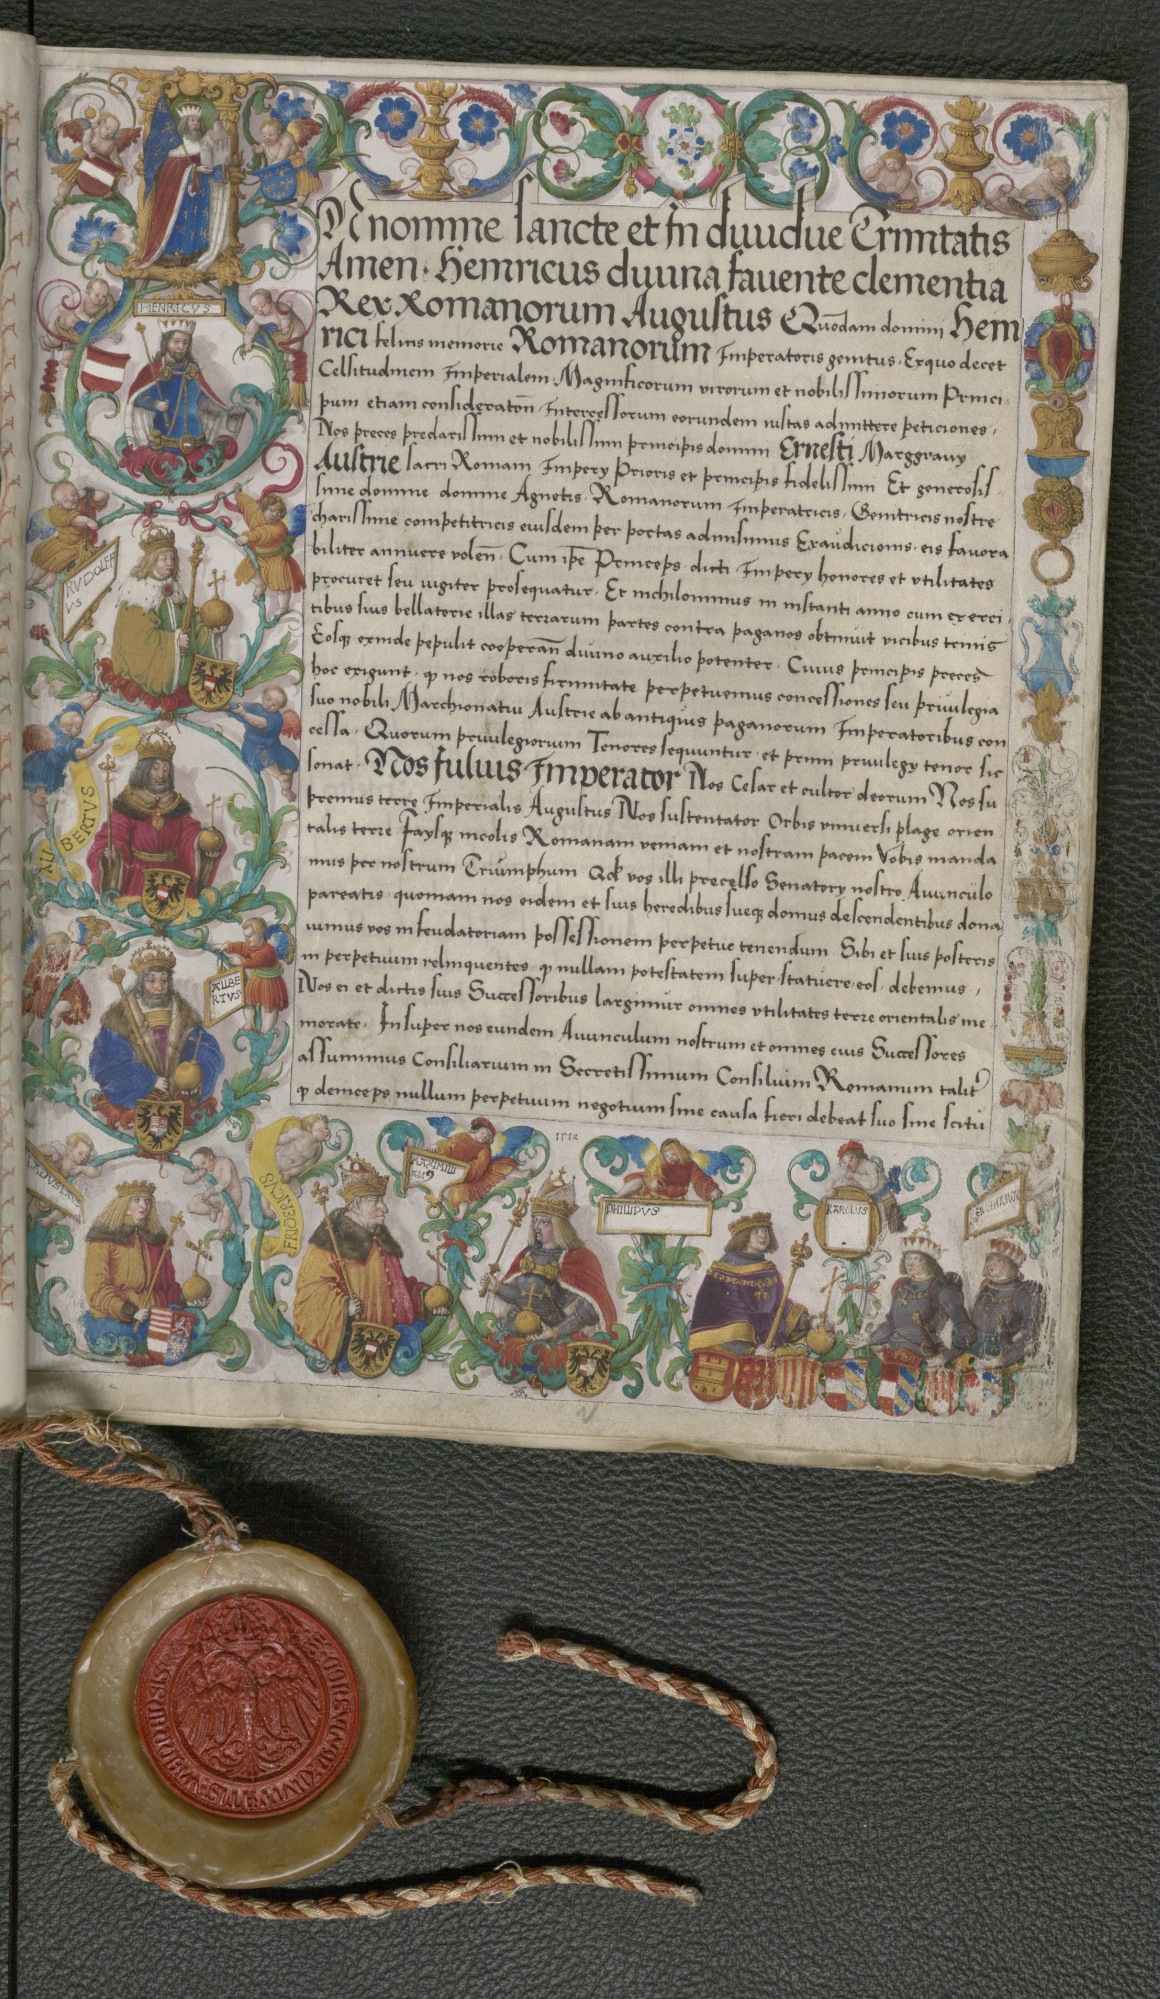 N nomine sancte et Indiuidue Trinitatis
Amen · Heinricus diuina fauente clementia
Rex Romanorum Augustus Quōdam domini Hein
rici felicis memorie Romanorum Imperatoris genitus · Exquo decet
Celsitudinem Imperialem · Magnificorum virorum et nobilissimorum Princi
pum etiam consideratōn Intercessorum eorundem iustas admittere peticiones ·
Nos preces preclarissimi et nobilissimi principis domini Ernesti Marggrauy
Austrie sacri Romani Impery Prioris et principis fidelissimi Et generosis
sime domine domine Agnetis · Romanorum Imperatricis · Genitricis nostre
charissime competitricis eiusdem per portas admisimus Exaudicionis · eis fauora
biliter annuere volen̄ · Cum ip̄e Princeps dicti Impery honores et vtilitates
procuret seu iugiter prosequatur · Et nichilominus in instanti anno cum exerci
tibus suis bellatorie illas terrarum partes contra paganos obtinuit vicibus trinis
Eosq exinde pepulit cooperan̄ diuino auxilio potenter · Cuius principis preces
hoc exigunt · q nos roboris firmitate perpetuemus concessiones seu priuilegia
suo nobili Marchionatui Austrie ab antiquis paganorum Imperatoribus con
cessa · Quorum priuilegiorum Tenores sequuntur · et primi priuilegy tenor sic
sonat · Nos Iulius Imperator Nos Cesar et cultor deorum Nos su
premus terre Imperialis Augustus Nos sustentator Orbis vniuersi plage orien
talis terre Faysq incolis Romanam veniam et nostram pacem Vobis manda
mus per nostrum Triumphum Qd vos illi precelso Senatory nostro Auunculo
pareatis · quoniam nos eidem et suis heredibus sueq domus descendentibus dona
uimus vos in feudatoriam possessionem perpetue tenendum Sibi et suis posteris
in perpetuum relinquentes · q nullam potestatem super statuere eos debemus ,
Nos ei et dictis suis Successoribus largimur omnes vtilitates terre orientalis me
morate · Insuper nos eundem Auunculum nostrum et omnes eius Successores
assumimus Consiliarium in Secretissimum Consilium Romanum talit
q deinceps nullum perpetuum negotium sine causa fieri debeat suo sine scitu
HENRICVS
RVDOLFF
VS
ALBERTVS
ALBE
RTVS
LADVSLAVS
FRIDERICVS
MAXIMILI
AN9
1512
PHILIPVS
KAROLVS